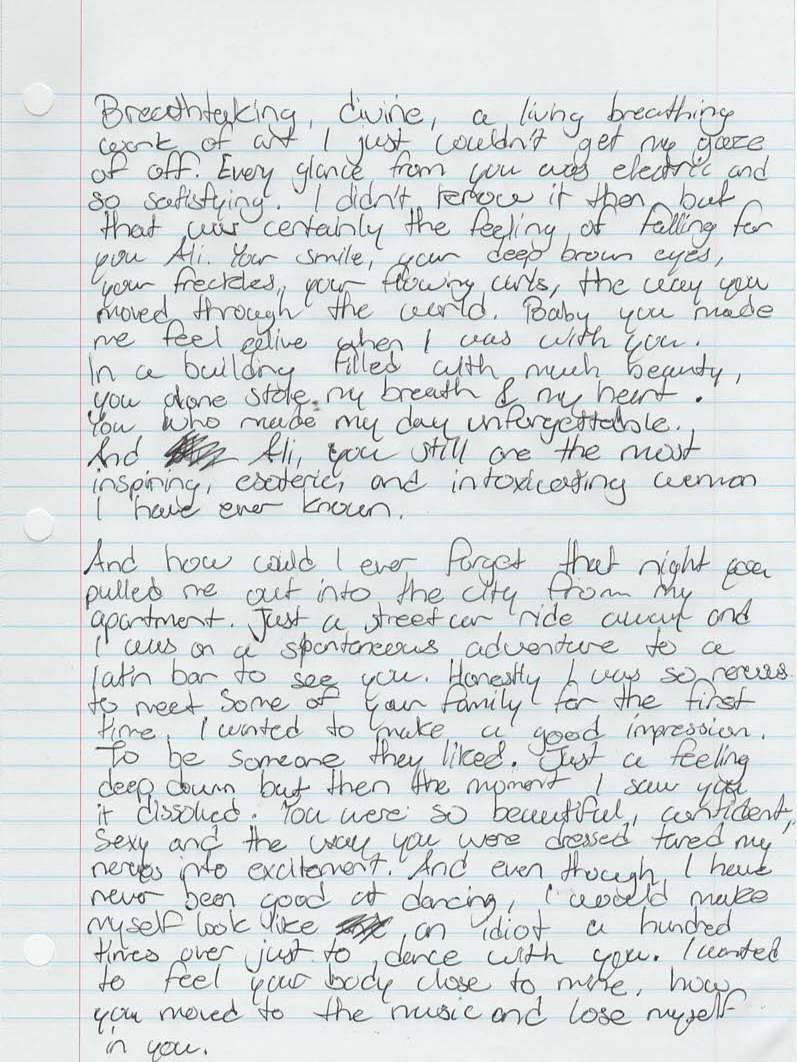 Breathtaking, divine, a living breathing
work of art I just couldn't get my gaze
of off. Every glance from you was electric and
so satisfying. I didn't it then, but
that was certainly the feeling of falling for
you Ali. Your smile, your deep brown eyes,
your freckles, your flowing curls, the way you
moved through the world. Baby you made
me feel alive when I was with you.
In a building filled with much beauty,
you alone stole my breath & my heart.
You who made my day unforgettable.
And Ali, you still are the most
inspiring, esoteric, and intoxicating woman
I have ever known.
And how could I ever forget that night you
pulled me out into the city from my
apartment. Just a streetcar ride away and
I was on a spontaneous adventure to a
latin bar to see you. Honestly I was so nervus
to meet some of your family for the first
time, I wanted to make a good impression.
To be someone they liked. Just a feeling
deep down but then the moment I saw you
it dissolved. You were so beautiful, confident,
sexy and the way you were dressed turned my
nerves into excitement. And even though I have
never been good at dancing, I would make
myself look like an idiot a hundred
times over just to dance with you. I wanted
to feel your body close to mine, how
you moved to the music and lose myself
in you.